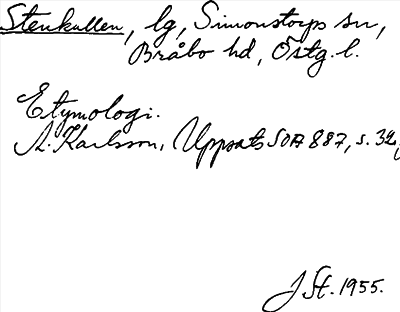 Stenkullen, lg, Simonstorps sn,
Bråbo hd, Östg. l.
Etymologi.
A. Karlsson, Uppsats SOA 887, s. 32,
J St. 1955.